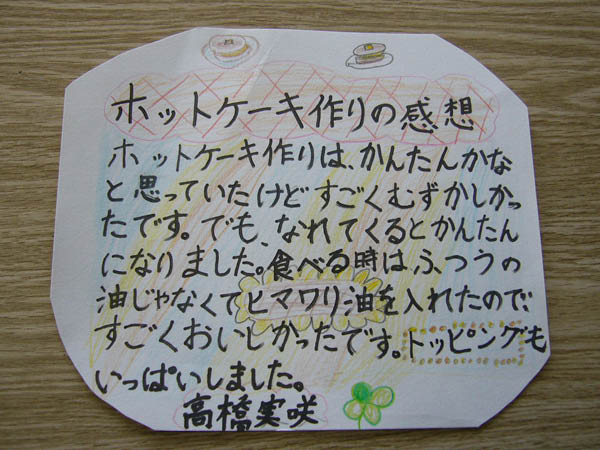 ホットケーキ作りの感想
ホットケーキ作りは、かんたんかな
と思っていたけどすごくむずかしかっ
たです。でも、なれてくるとかんたん
になりました。食べる時は、ふつうの
油じゃなくてヒマワリ油を入れたので、
すごくおいしかったです。トッピングも
いっぱいしました。
高橋実咲